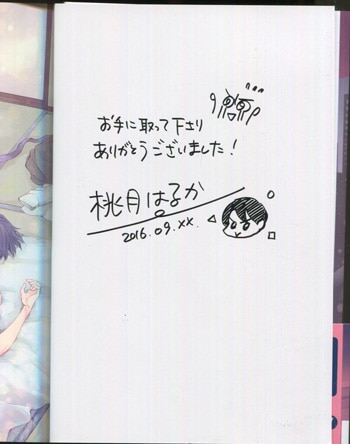 お手に取って下さり
ありがとうございました!
桃月はるか
2016.09.xx.